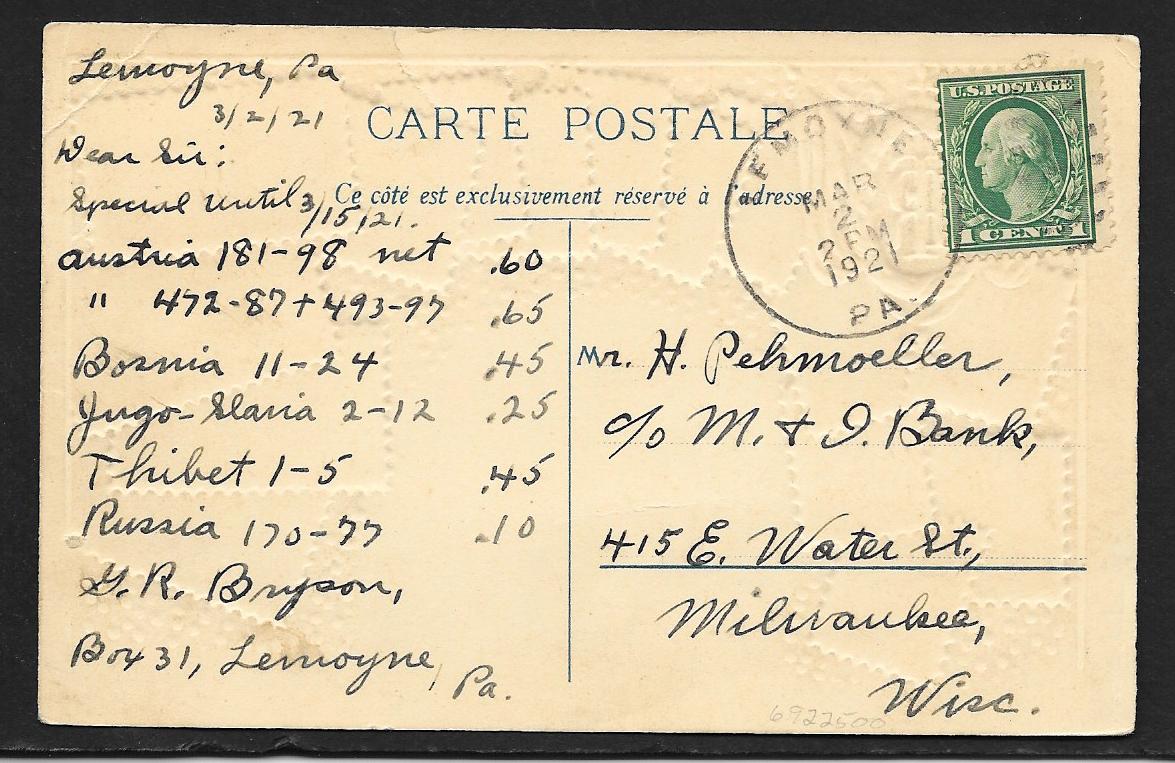 Lemoyne, Pa
3/2/21
Dear Sir:
Special until 3/15/21.
Austria 181-98 net .60
" 472-87+493-97 .65
Bosnia 11-24 .45
Jugo-Slavia 2-12 .25
Thibet 1-5 .45
Russia 170-77 .10
G. R. Bryson,
Box 31, Lemoyne, Pa.
CARTE POSTALE
Ce côté est exclusivement réservé à l'adresse
LEMOYNE
MAR
2
2 PM
1921
PA.
U.S. POSTAGE
1 CENT 1
Mr. H. Pehmoeller,
c/o M. & I. Bank,
415 E. Water St.,
Milwaukee,
Wisc.
6922500